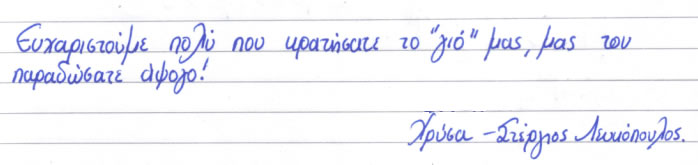 Ευχαριστούμε πολύ που κρατήσατε το "γιό" μας, μας τον
παραδώσατε άψογο!
Χρύσα - Στέργιος Λευκόπουλος.